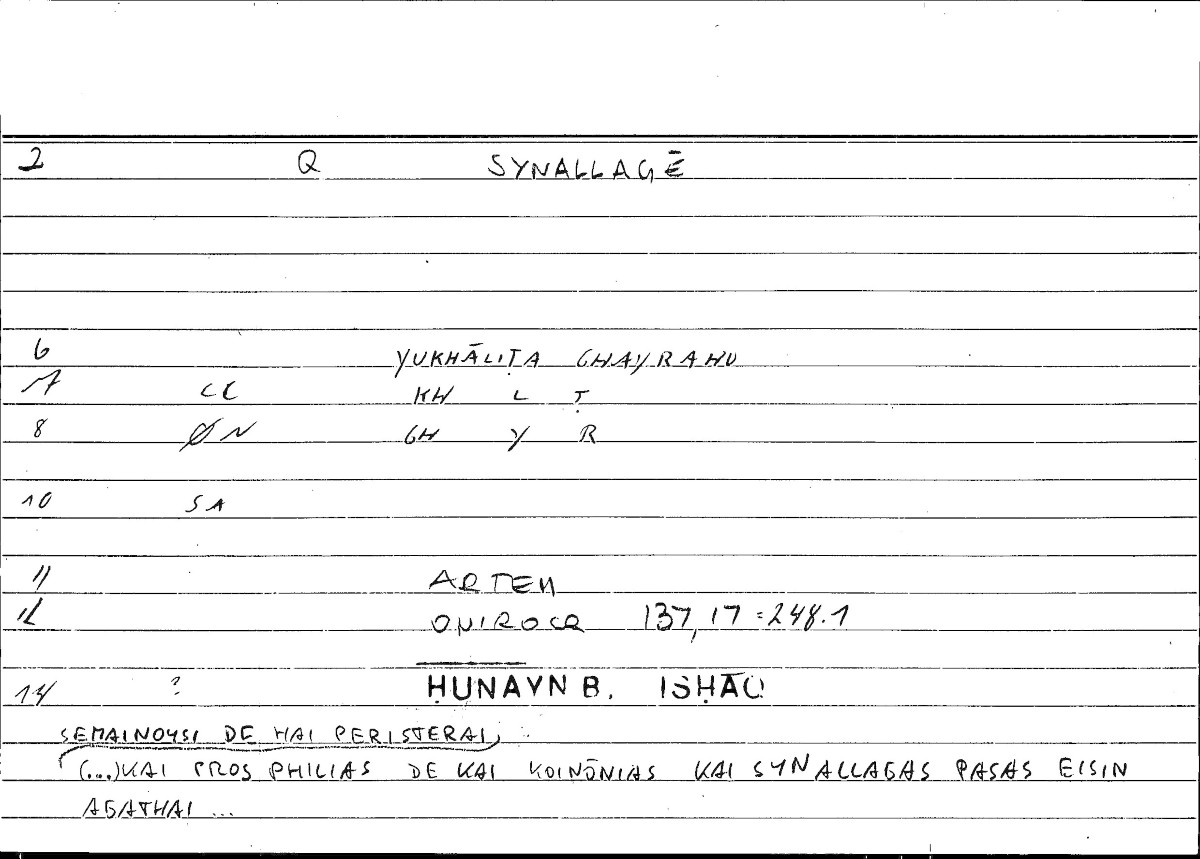 2 Q SYNALLAGĒ
6 YUKHĀLIṬA GHAYRAHU
7 CC KH L Ṭ
8 ØN GH Y R
10 SA
11 ARTEM
12 ONIROCR 137,17 = 248.1
14 ? ḤUNAYN B. ISḤĀQ
SEMAINOYSI DE HAI PERISTERAI
(...) KAI PROS PHILIAS DE KAI KOINŌNIAS KAI SYNALLAGAS PASAS EISIN
AGATHAI ...